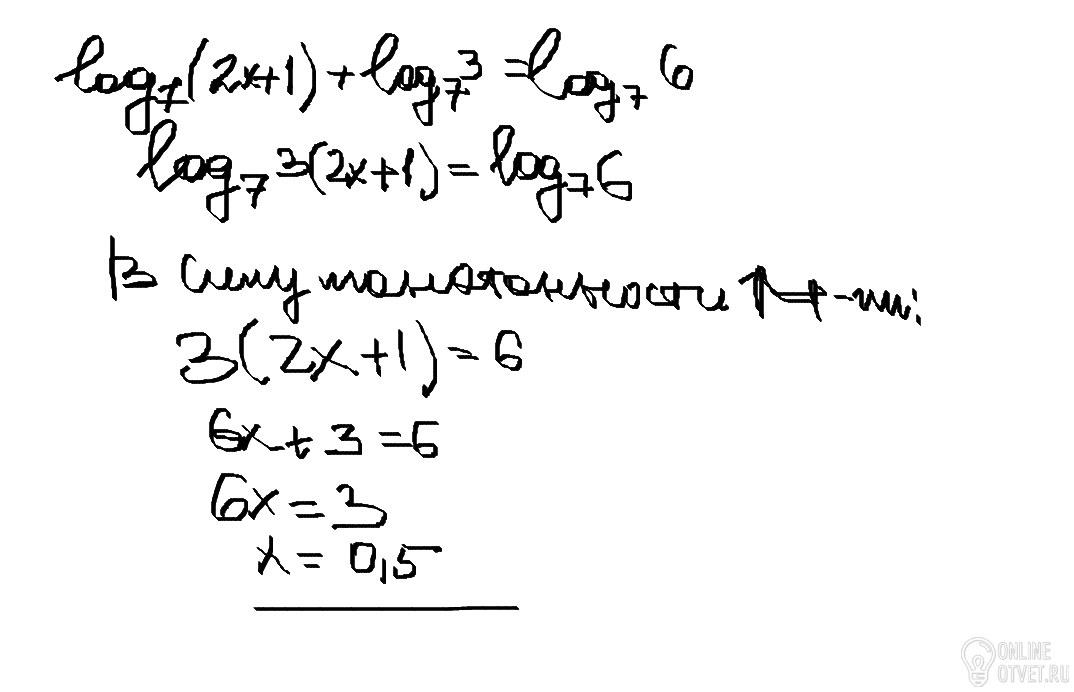 log₇(2x+1)+log₇3=log₇6
log₇3(2x+1)=log₇6
В силу монотонности
3(2x+1)=6
6x+3=6
6x=3
x=0,5
ONLINE
OTVET.RU